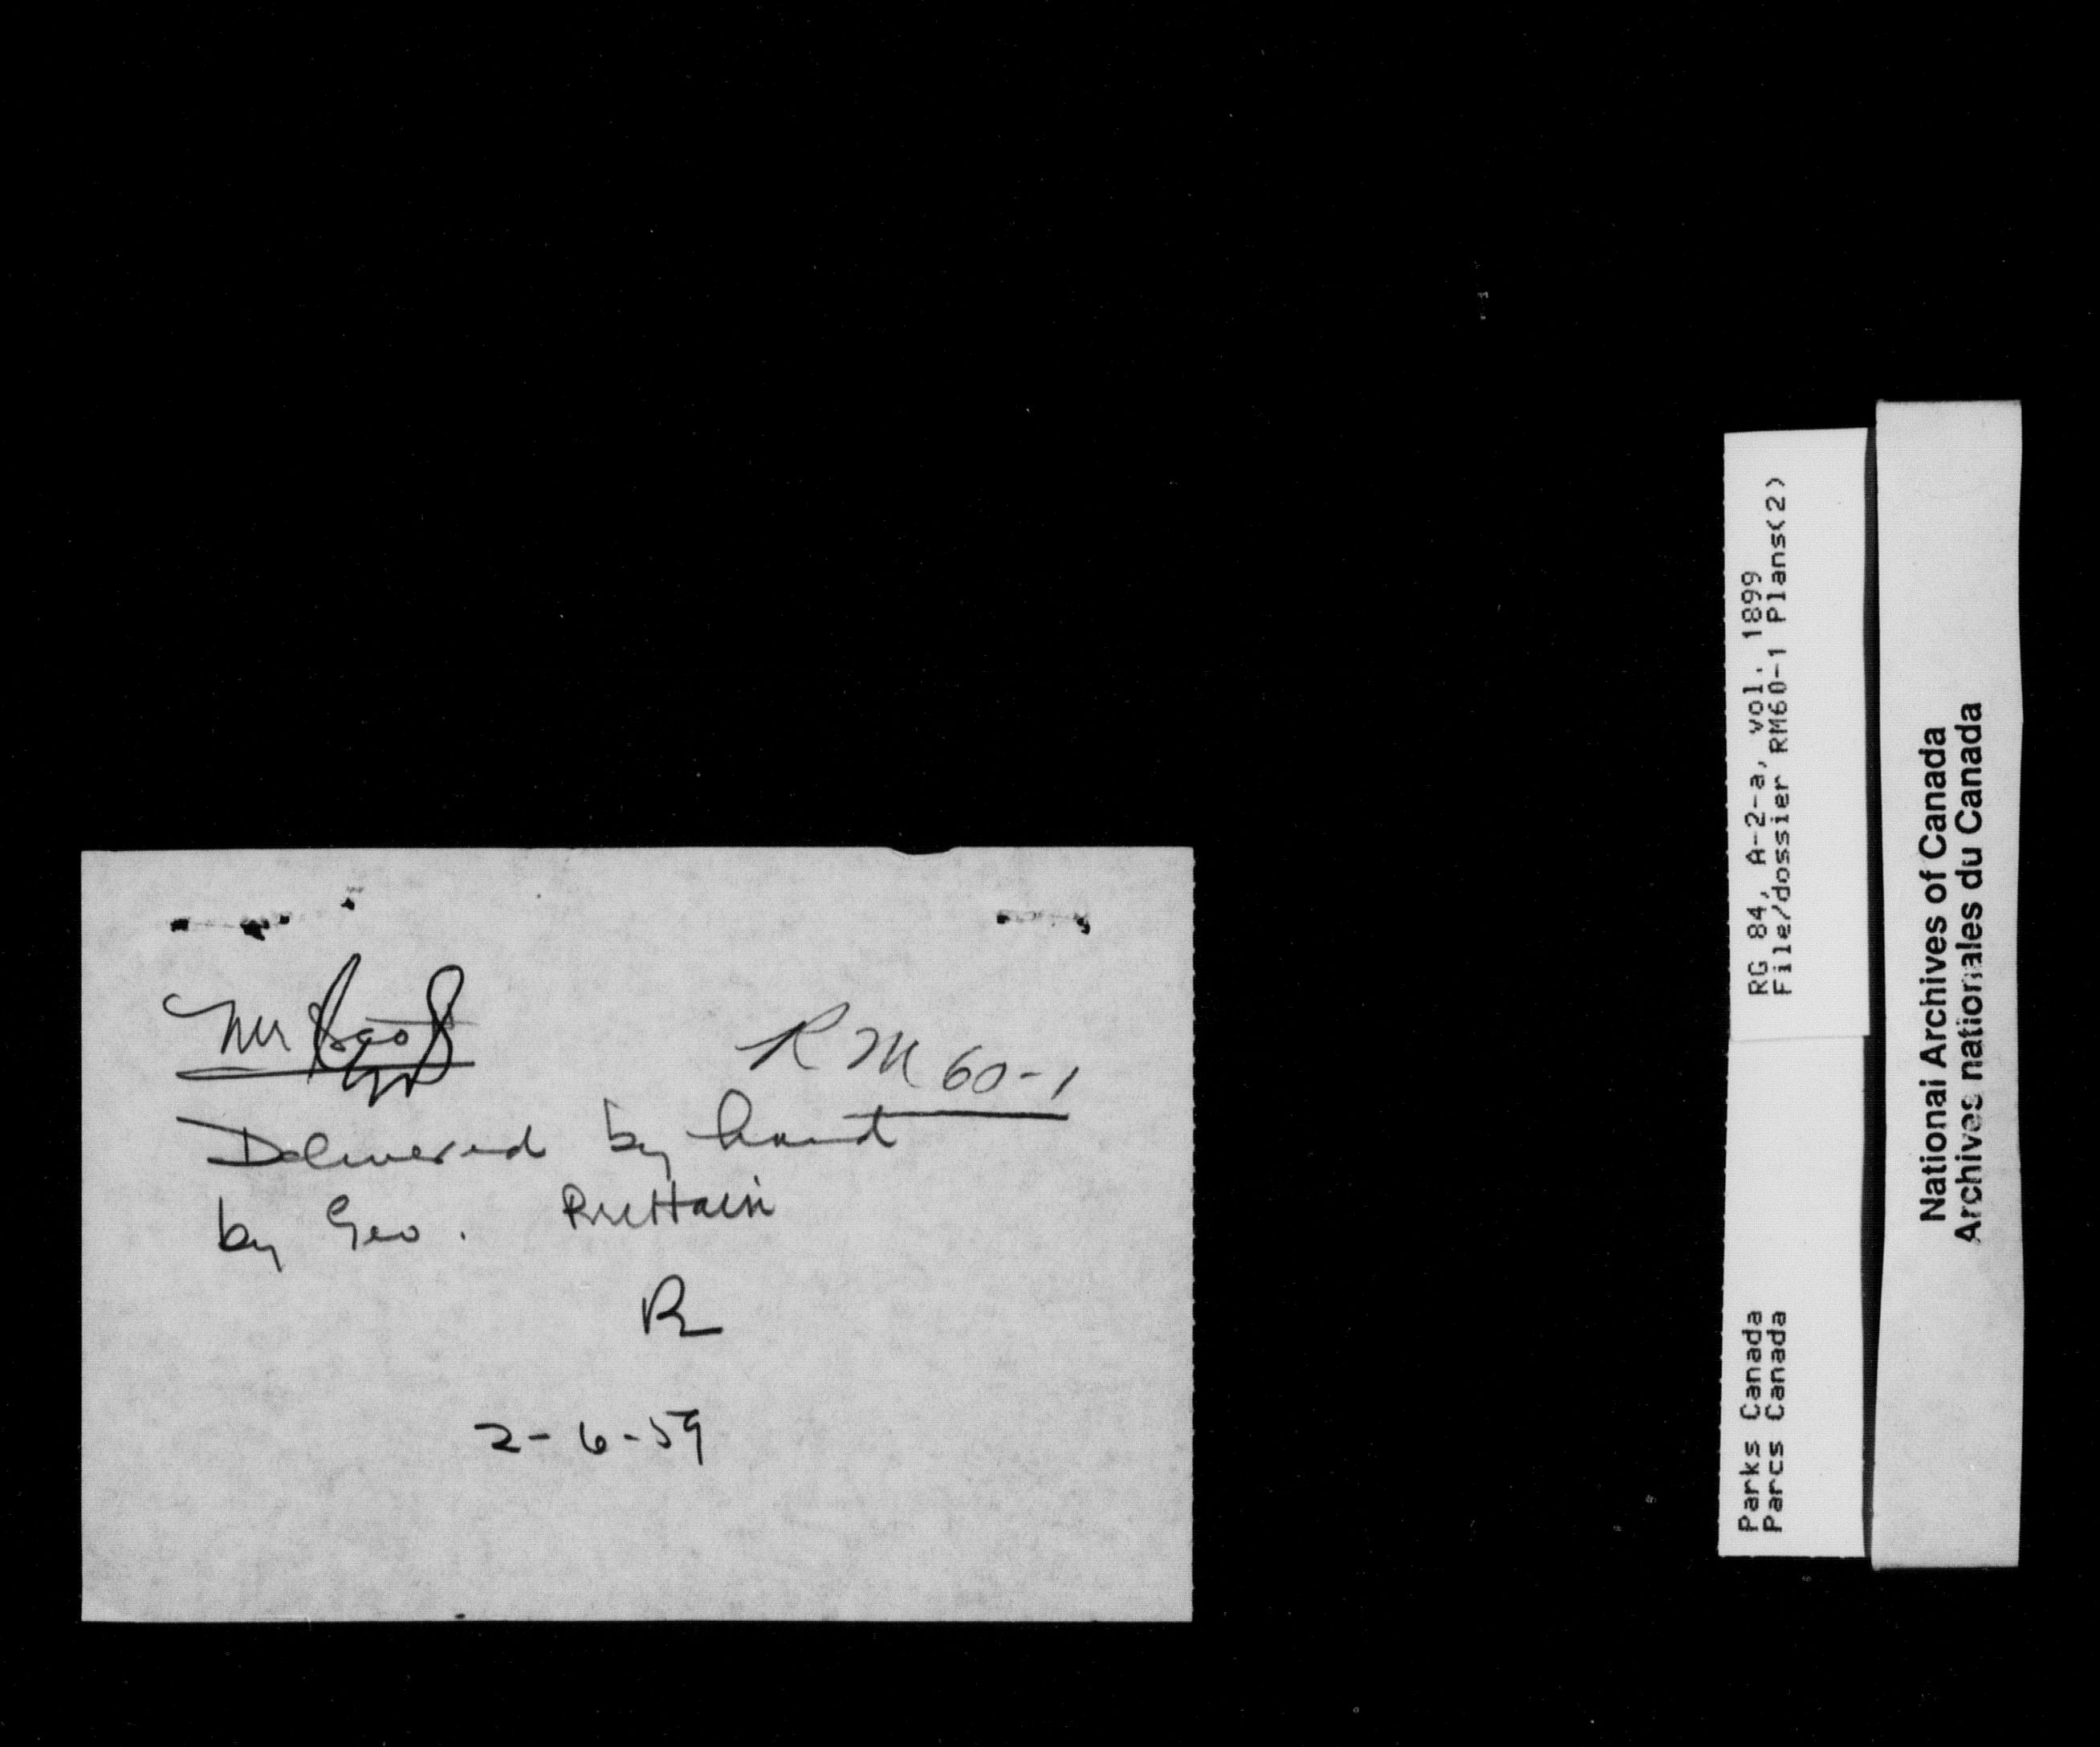 Mr
RM 60-1
Delivered by hand
by Geo. Brittain
R
2-6-59
RG 84, A-2-a, vol. 1899
File/dossier RM60-1 Plans(2)
Parks Canada
Parcs Canada
National Archives of Canada
Archives nationales du Canada